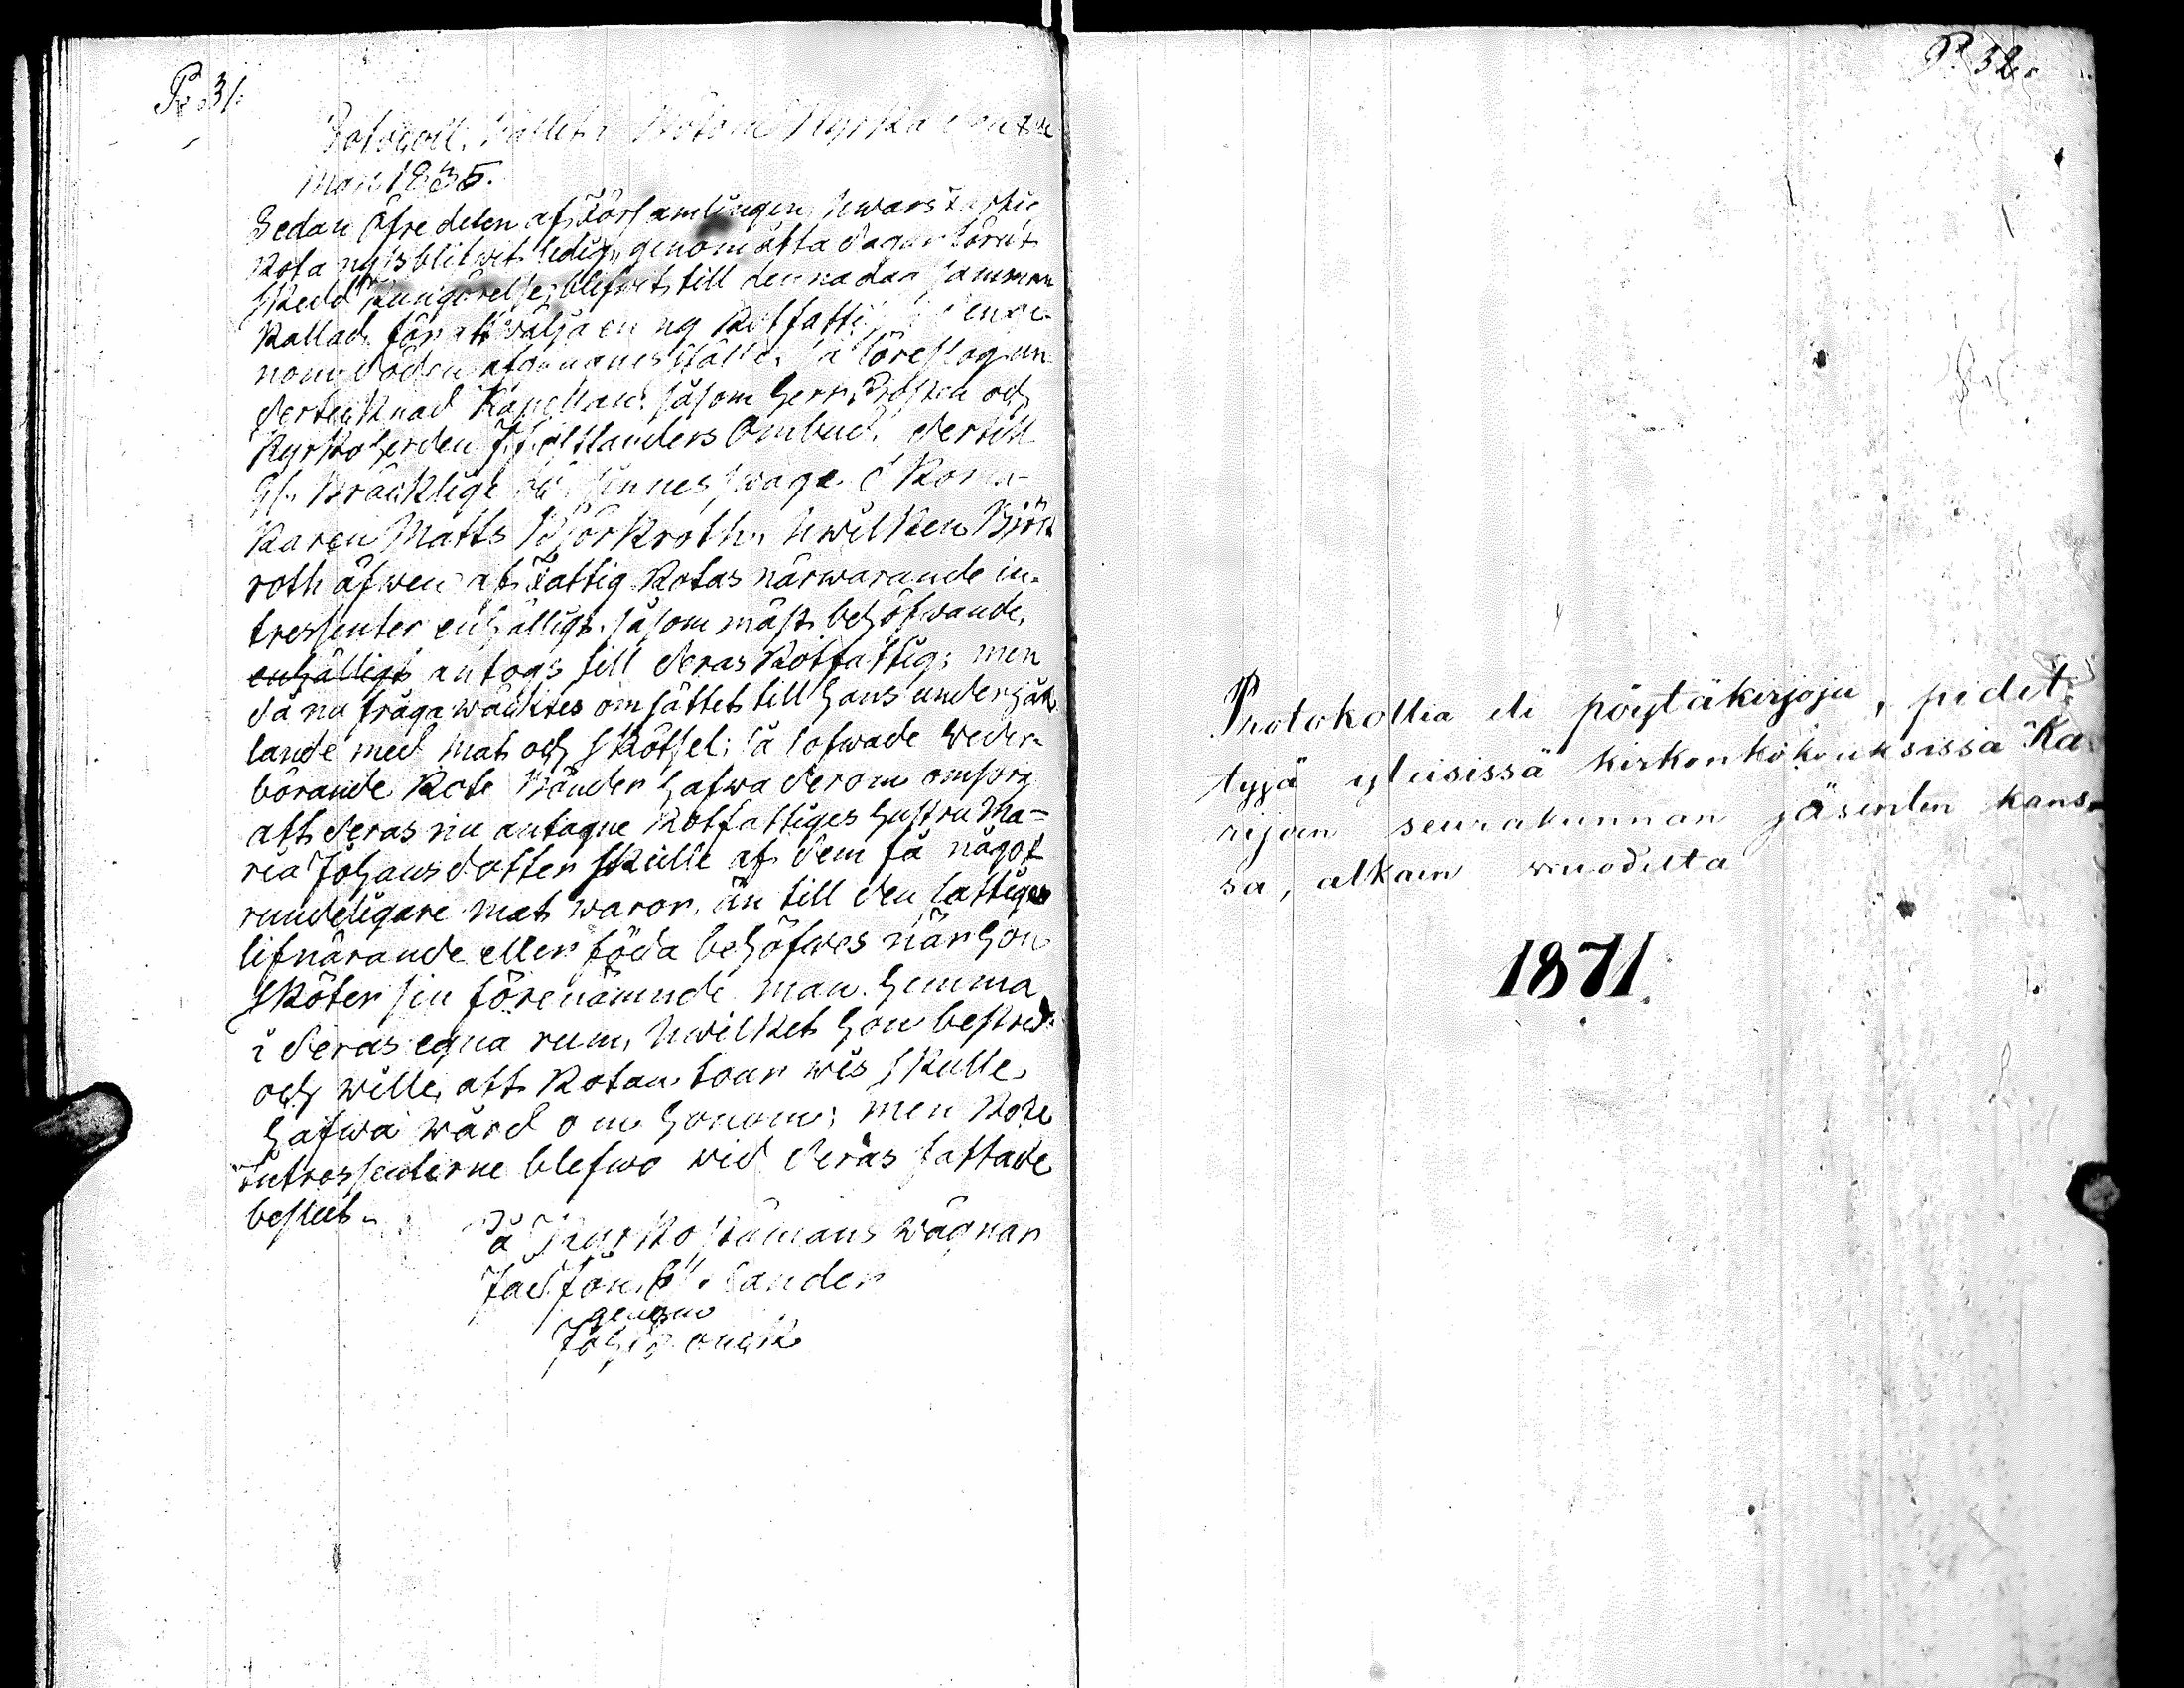 P. 31.
Kyrka den
Mars 1835.
Sedan Öfre delen af Församlingen, hwars Fattig
Rota nyss blifwit ledig, genom åtta dagar förut
skedd kungörelse, blifwit till denna dag samman
kallad för att wälja en ny Rotfattig
döden afgangnes ställe, så föreslog un
dertecknad Kapellan, såsom Herr Prosten och
Kyrkoherden Ombud, dertill
bräcklige och sinnes swage
karen Matts Björkroth, hwilken Björk
roth äfwen af Fattig Rotas närwarande in-
tressenter enhälligt, såsom mäst behöfwande,
enhälligt antogs till deras Rotfattig; men
då nu fråga wäcktes om sättet till hans underhål
lande med mat och skötsel; så lofwade weder-
börande Rote Bönder hafwa derom omsorg
att deras nu antagne Rotfattiges hustru Ma-
ria Johansdotter skulle af dem få något
rundeligare mat waror, än till den fattiges
lifnärande eller föda behöfwes när hon
sköter sin förenämnde man hemma
i deras egna rum, hwilket hon bestred
och wille, att Rotan tour wis skulle
hafwa wård om honom; men Rote
Intressenterne blefwo wid deras fattade
beslut.
På Kyrkostämans wägnar
genom
P. 32.
Protokollia eli pöytäkirjoja, pidet-
tyjä yleisissä kirkonkokouksissa Ka-
rijoen seurakunnan jäsenten kans-
sa, alkain vuodelta
1871.